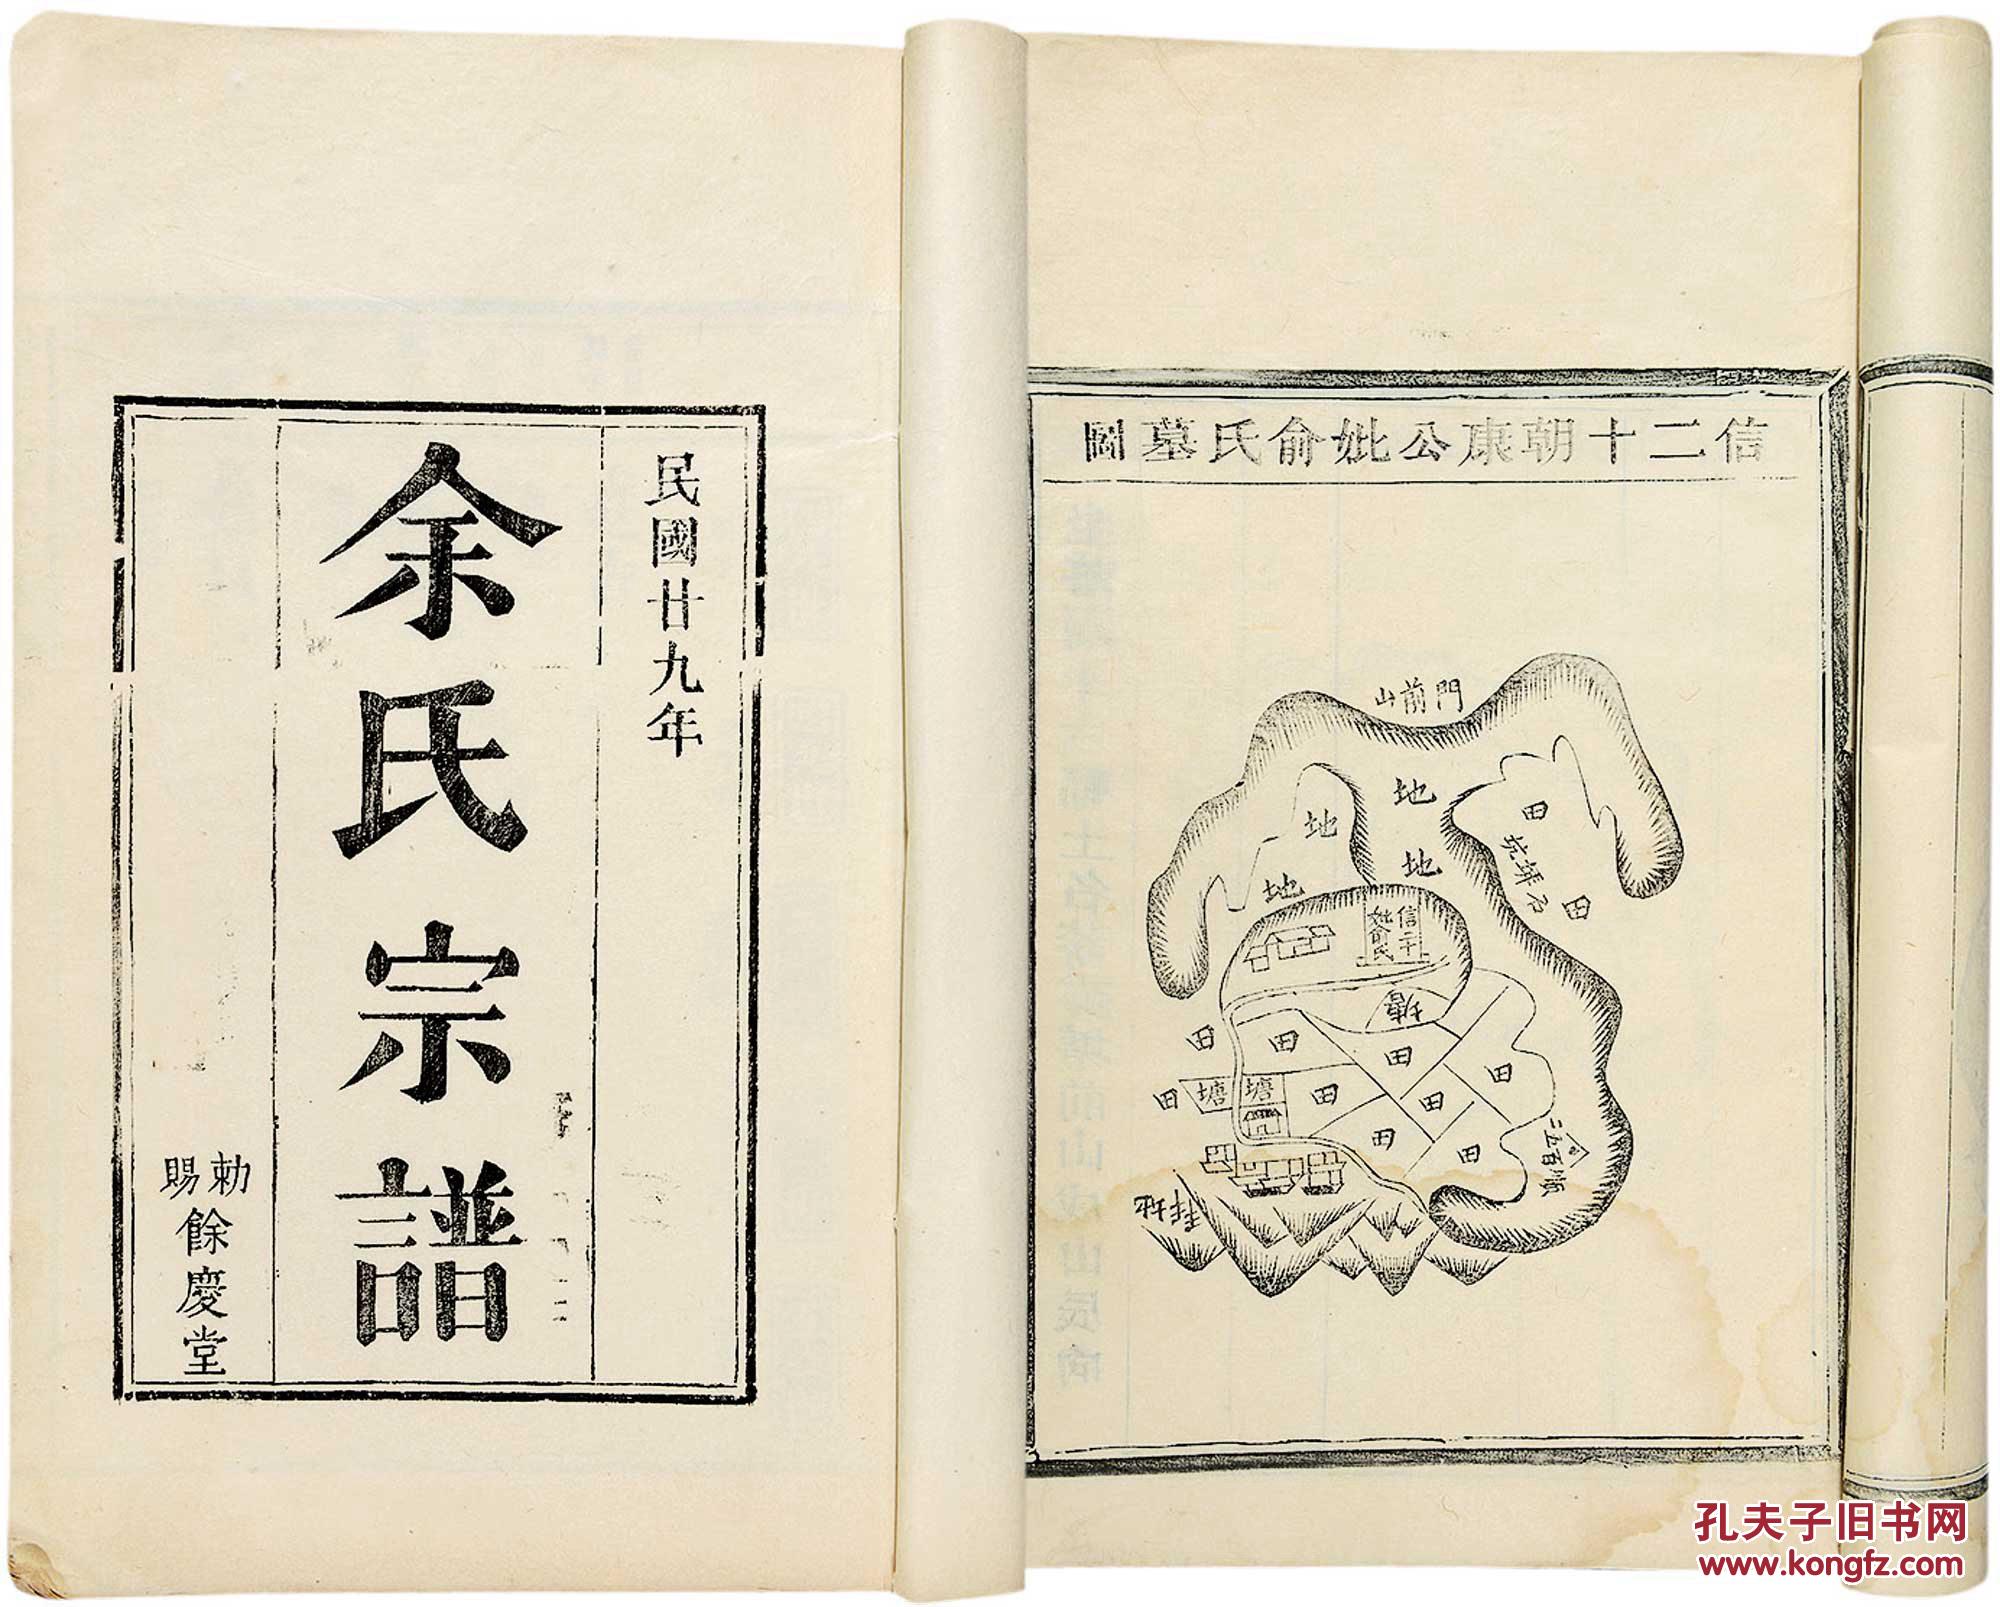 民國廿九年
余氏宗譜
勅賜餘慶堂
信二十朝康公妣俞氏墓圖
門前山
地
地
地
地
田
坑塝石
田
信二十
妣俞氏
塘
田
田
田
田
田
塘
塘
田
田
田
田
孔夫子旧书网
www.kongfz.com